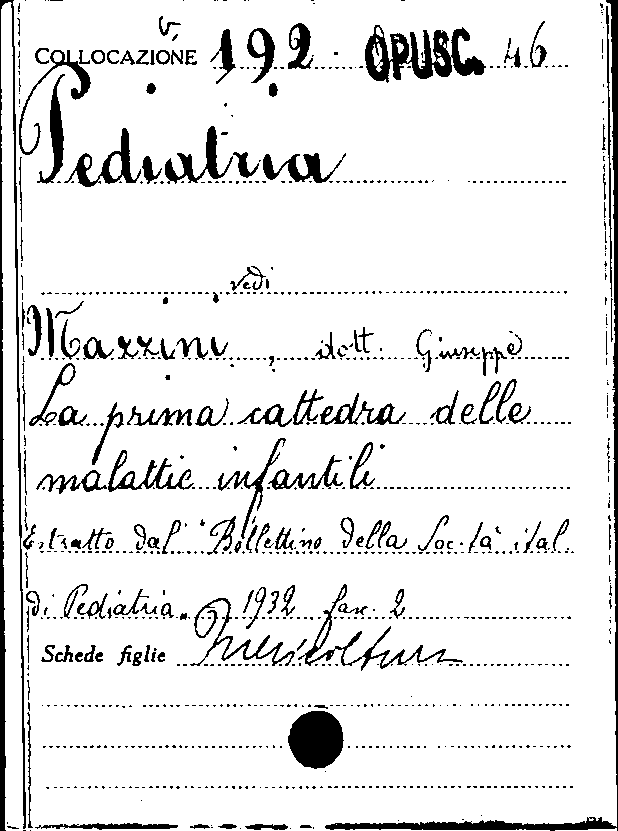 V.
COLLOCAZIONE 192. OPUSC. 46
Pediatria
vedi
Mazzini, dott. Giuseppe
La prima cattedra delle
malattie infantili
Estratto dal "Bollettino della Soc.tà ital.
di Pediatria" 1932 fasc. 2
Schede figlie Puericoltura